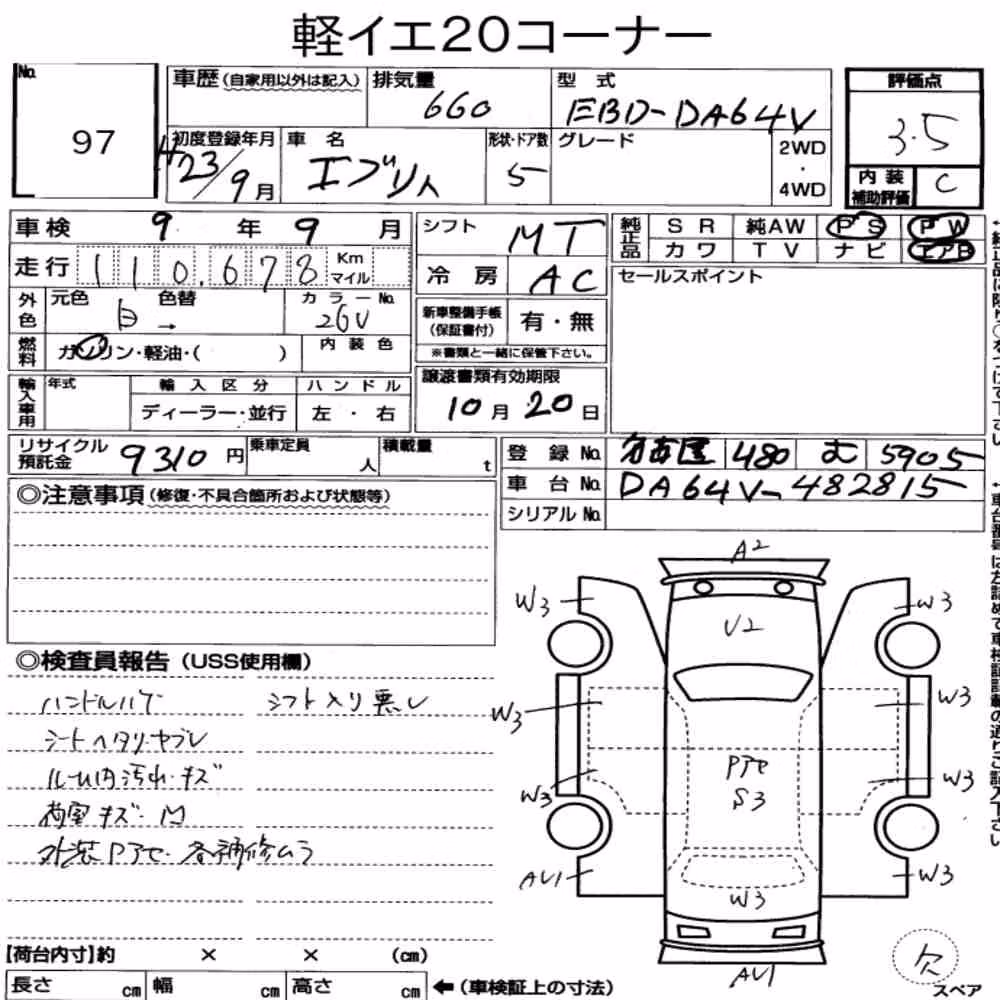 軽イエ20コーナー
No. 97
車歴 (自家用以外は記入)
排気量 660
型式 EBD-DA64V
評価点 3.5
初度登録年月 H23/9月
車名 エブリィ
形状・ドア数 5
グレード
2WD・4WD
内装補助評価 C
車検 9年9月
シフト MT
純正品 SR 純AW PS PW
カワ TV ナビ エアB
走行 110,678 Km マイル
冷房 AC
セールスポイント
外色 元色 白 → 色替
カラーNo. 26U
新車整備手帳(保証書付) 有・無
※書類と一緒に保管下さい。
燃料 ガソリン・軽油・( )
内装色
輸入車用 年式 輸入区分 ハンドル
ディーラー・並行 左・右
譲渡書類有効期限
10月20日
リサイクル預託金 9310円
乗車定員 人
積載量 t
登録No. 名古屋 480 む 5905
車台No. DA64V-482815
シリアルNo.
◎注意事項 (修復・不具合箇所および状態等)
◎検査員報告 (USS使用欄)
ハンドルハゲ シフト入り悪し
シートヘタリ・ヤブレ
ルーム内汚れ・キズ
荷室キズ・凹
外装Pアセ・各補修ムラ
A2
W3 U2 W3
W3 W3
Pアセ
S3
W3 W3
AU1 W3 W3
AU1
欠
スペア
【荷台内寸】約 × × (cm)
長さ cm 幅 cm 高さ cm ←(車検証上の寸法)